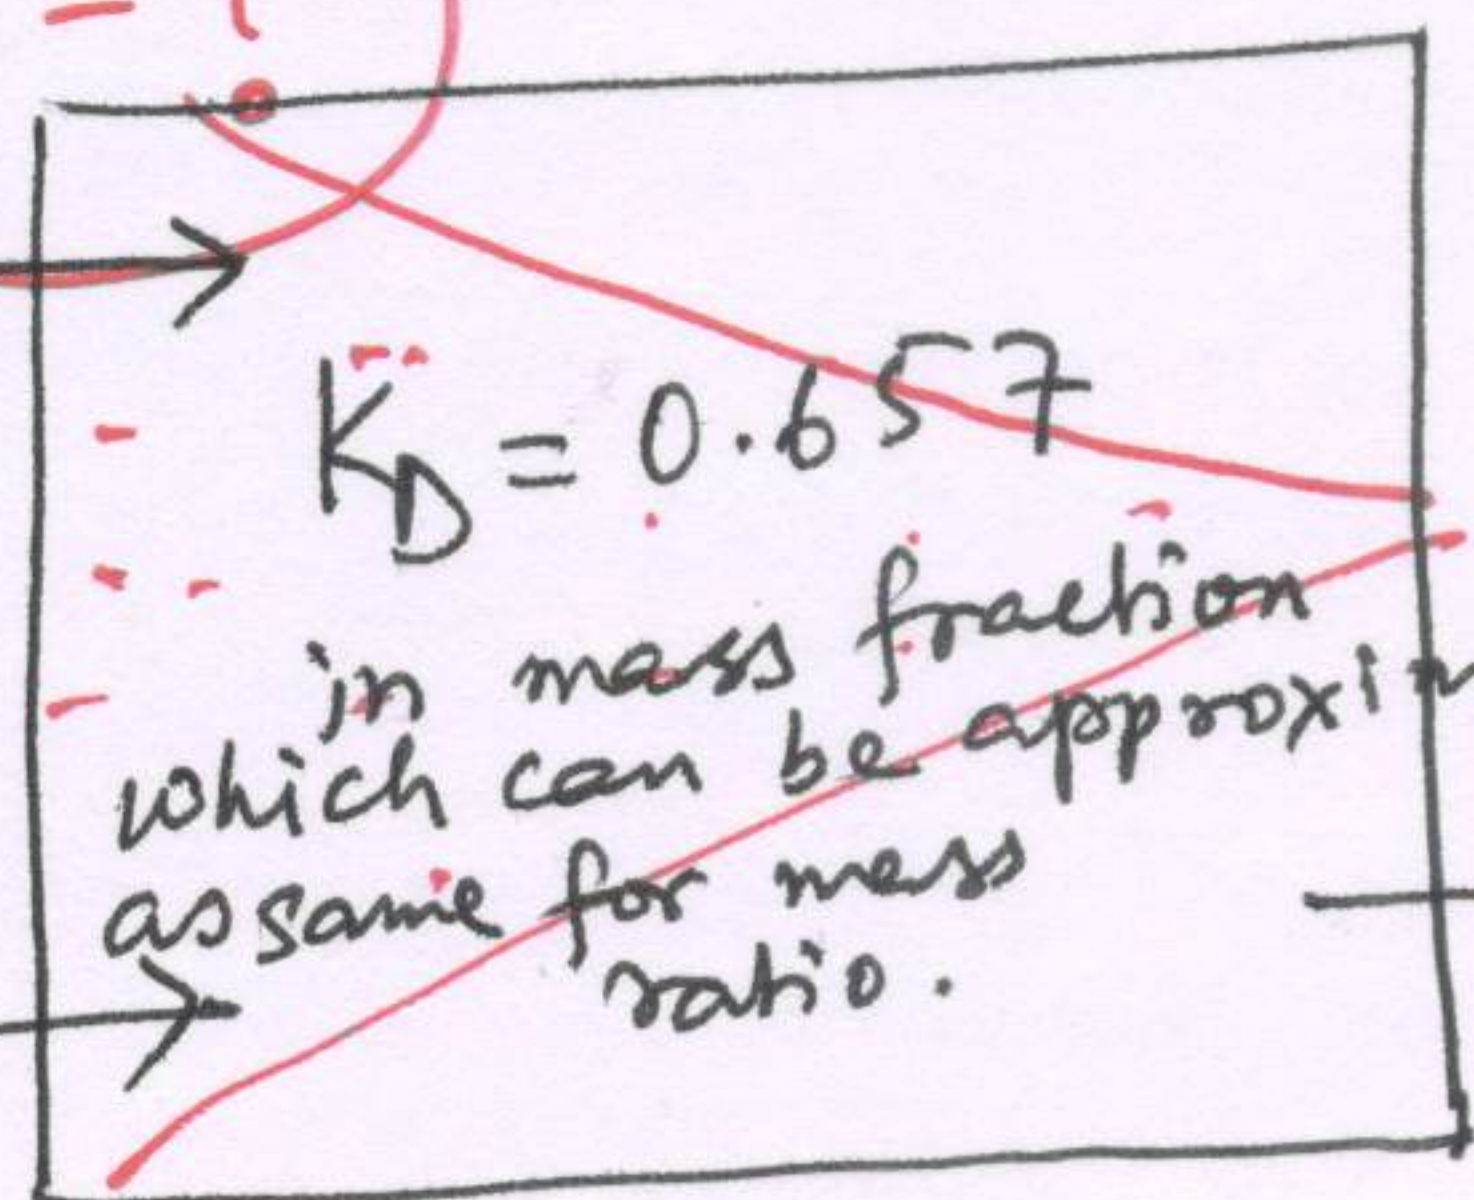 K_D = 0.657
in mass fraction
which can be approxim
as same for mass
ratio.